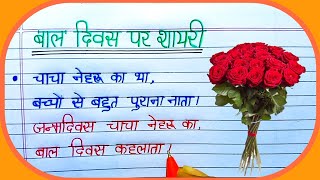 बाल दिवस पर शायरी
• चाचा नेहरू का था,
बच्चों से बहुत पुराना नाता।
जन्मदिवस चाचा नेहरू का,
बाल दिवस कहलाता।